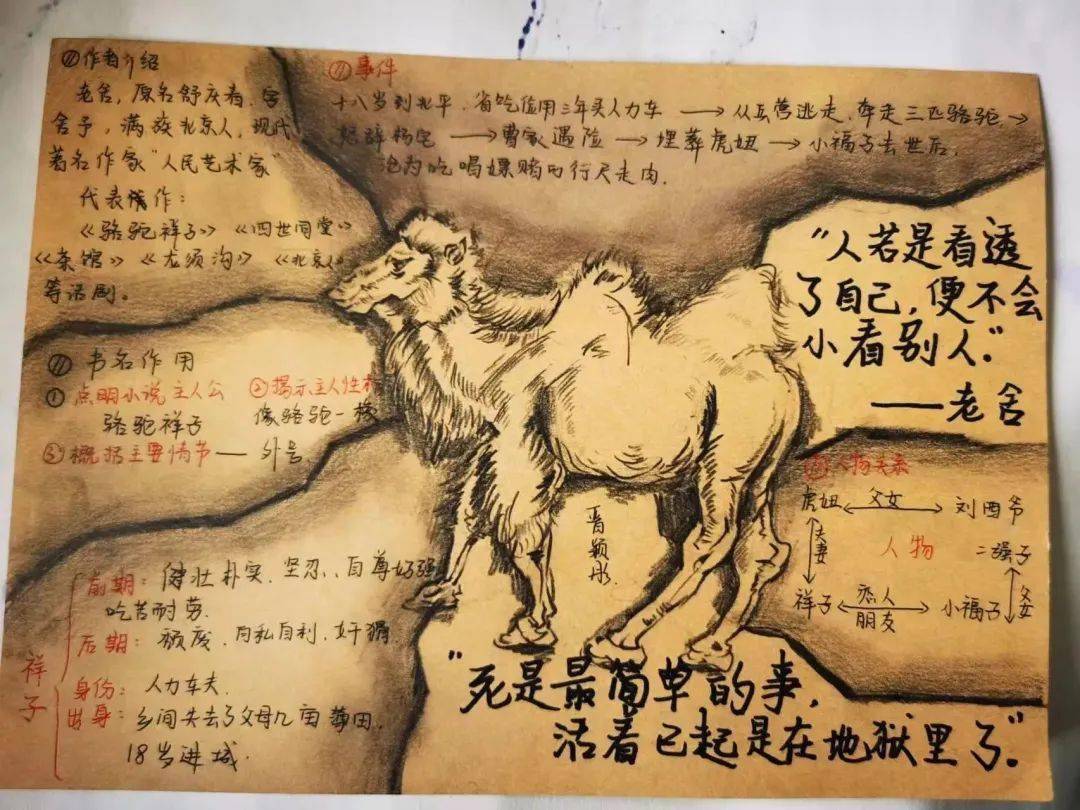 作者介绍
老舍，原名舒庆春，字
舍予，满族北京人，现代
著名作家“人民艺术家”
代表作：
《骆驼祥子》《四世同堂》
《茶馆》《龙须沟》《北京人》
等话剧。
事件
十八岁到北平，省吃俭用三年买人力车 → 从兵营逃走，牵走三匹骆驼 →
怒辞杨宅 → 曹家遇险 → 埋葬虎妞 → 小福子去世后，
沦为吃喝嫖赌的行尸走肉.
“人若是看透
了自己，便不会
小看别人.”
——老舍
书名作用
① 点明小说主人公 ②揭示主人性格
骆驼祥子 像骆驼一样
③概括主要情节—— 外号
人物关系
虎妞 父女 刘四爷
夫妻 人物 二强子
祥子 恋人 小福子 父女
朋友
晋颖彤
祥子
前期：健壮朴实、坚忍、自尊好强
吃苦耐劳.
后期：颓废、自私自利、奸猾
身份：人力车夫.
出身：乡间失去了父母几亩薄田.
18岁进城.
“死是最简单的事，
活着已起是在地狱里了.”